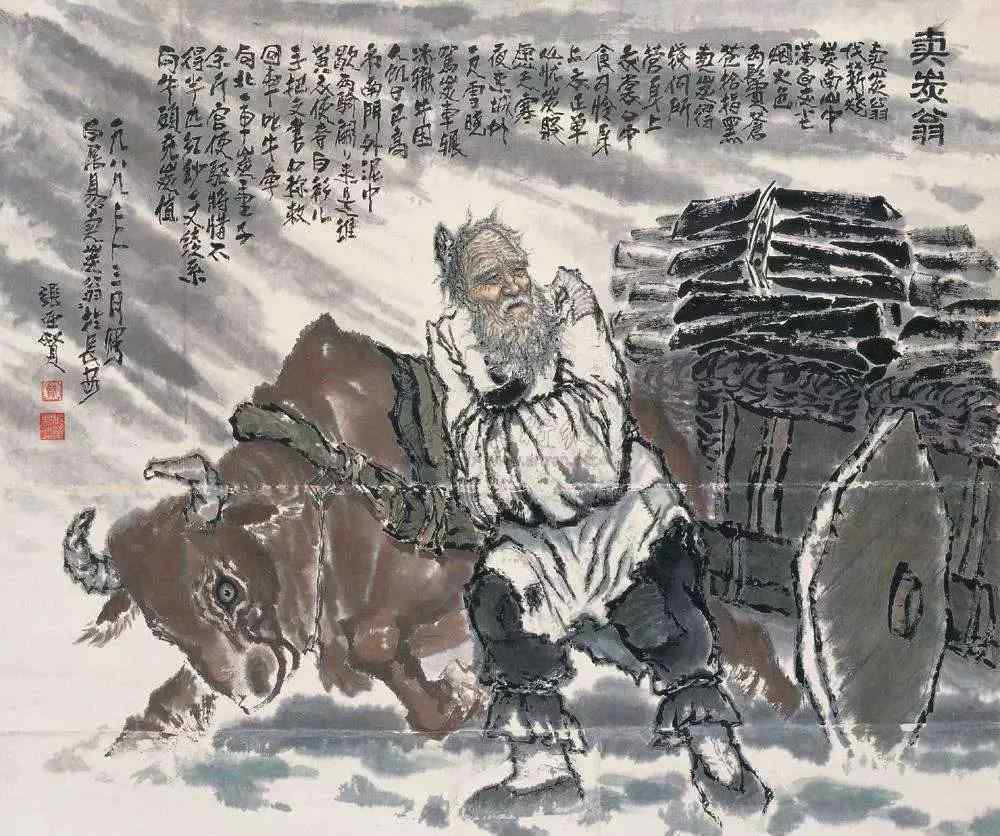 卖炭翁
卖炭翁
伐薪烧
炭南山中
满面尘
烟火色
两鬓苍
苍十指黑
卖炭得
钱何所
营身上
衣裳口中
食可怜身
上衣正单
心忧炭贱
愿天寒
夜来城外
一尺雪晓
驾炭车辗
冰辙牛困
人饥日已高
市南门外泥中
歇两骑翩翩来是谁
黄衣使者白衫儿
手把文书口称敕
回车叱牛牵
向北一车炭重千
余斤宫使驱将惜不
得半匹红纱一丈绫系
向牛头充炭值
一九八九月写
白居易卖炭翁于长安